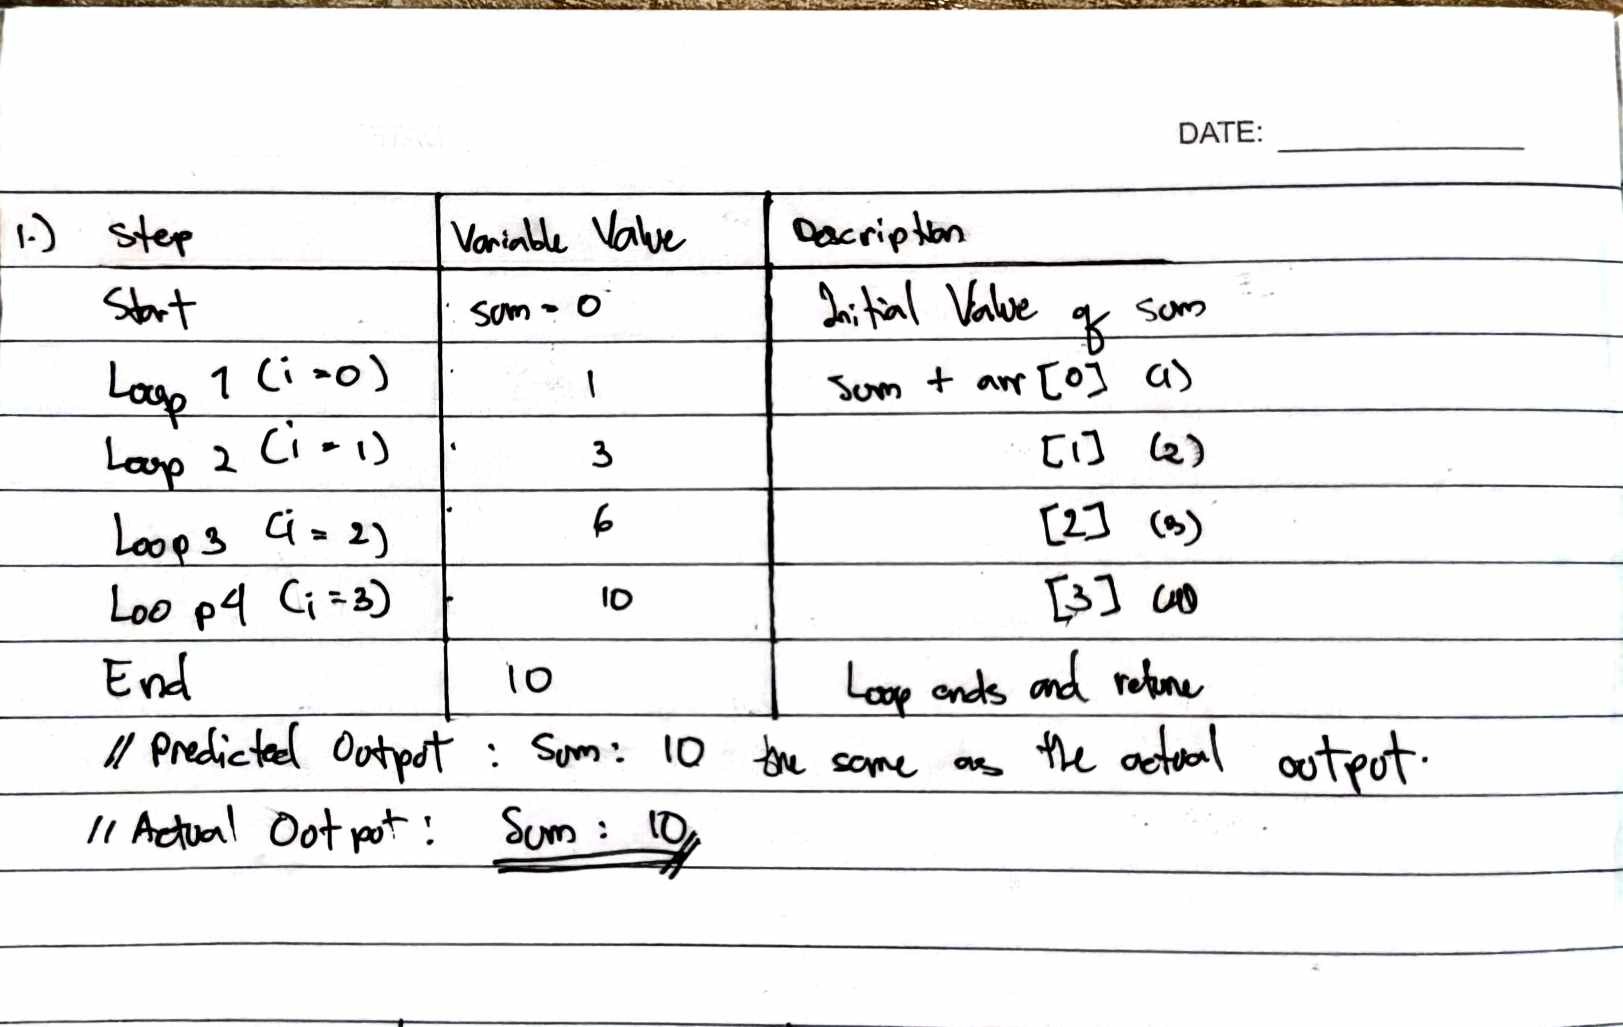 DATE:
1.) Step Variable Value Description
Start sum = 0 Initial Value of sum
Loop 1 (i=0) 1 sum + arr [0] (1)
Loop 2 (i = 1) 3 [1] (2)
Loop 3 (i = 2) 6 [2] (3)
Loop 4 (i=3) 10 [3] (4)
End 10 Loop ends and
// Predicted Output : Sum: 10 the same as the actual output.
// Actual Output: Sum : 10